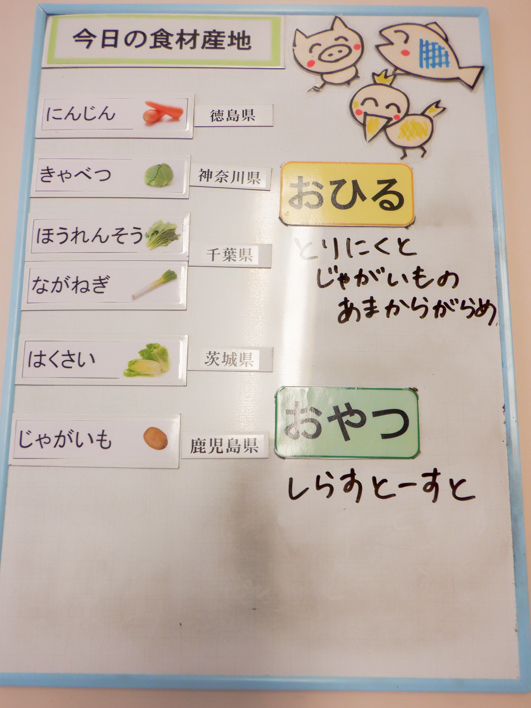 今日の食材産地
にんじん 徳島県
きゃべつ 神奈川県
ほうれんそう
千葉県
ながねぎ
はくさい 茨城県
じゃがいも 鹿児島県
おひる
とりにくと
じゃがいもの
あまからがらめ
おやつ
しらすとーすと